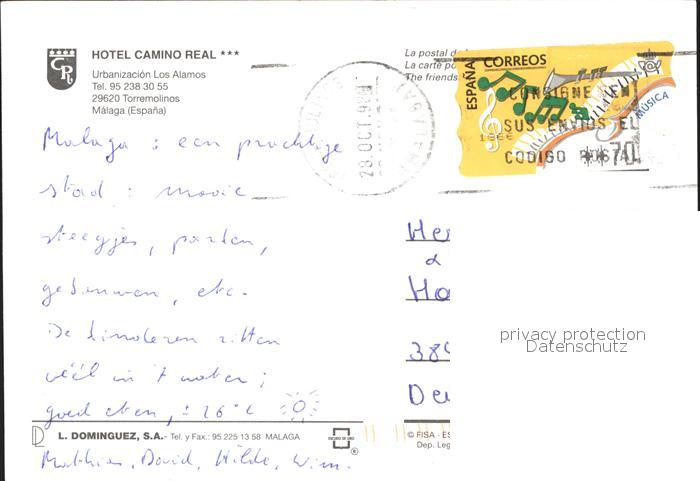 HOTEL CAMINO REAL ***
Urbanización Los Alamos
Tel. 95 238 30 55
29620 Torremolinos
Málaga (España)
La postal d
La carte po
The friends
ESPAÑA
CORREOS
MÚSICA
CONSIGNE EN
SUS ENVIOS EL
CODIGO POSTAL
**70
28.OCT.9
Malaga : een prachtige
stad : mooie
steegjes, parken,
gebouwen, etc.
De kinderen zitten
véél in 't water ;
goed eten, ± 26°C
He
&
Ho
384
De
privacy protection
Datenschutz
L. DOMINGUEZ, S.A.- Tel. y Fax.: 95 225 13 58 MALAGA
ESCUDO DE ORO
®
© FISA - ES
Dep. Leg
Matthias, David, Hilde, Wim.